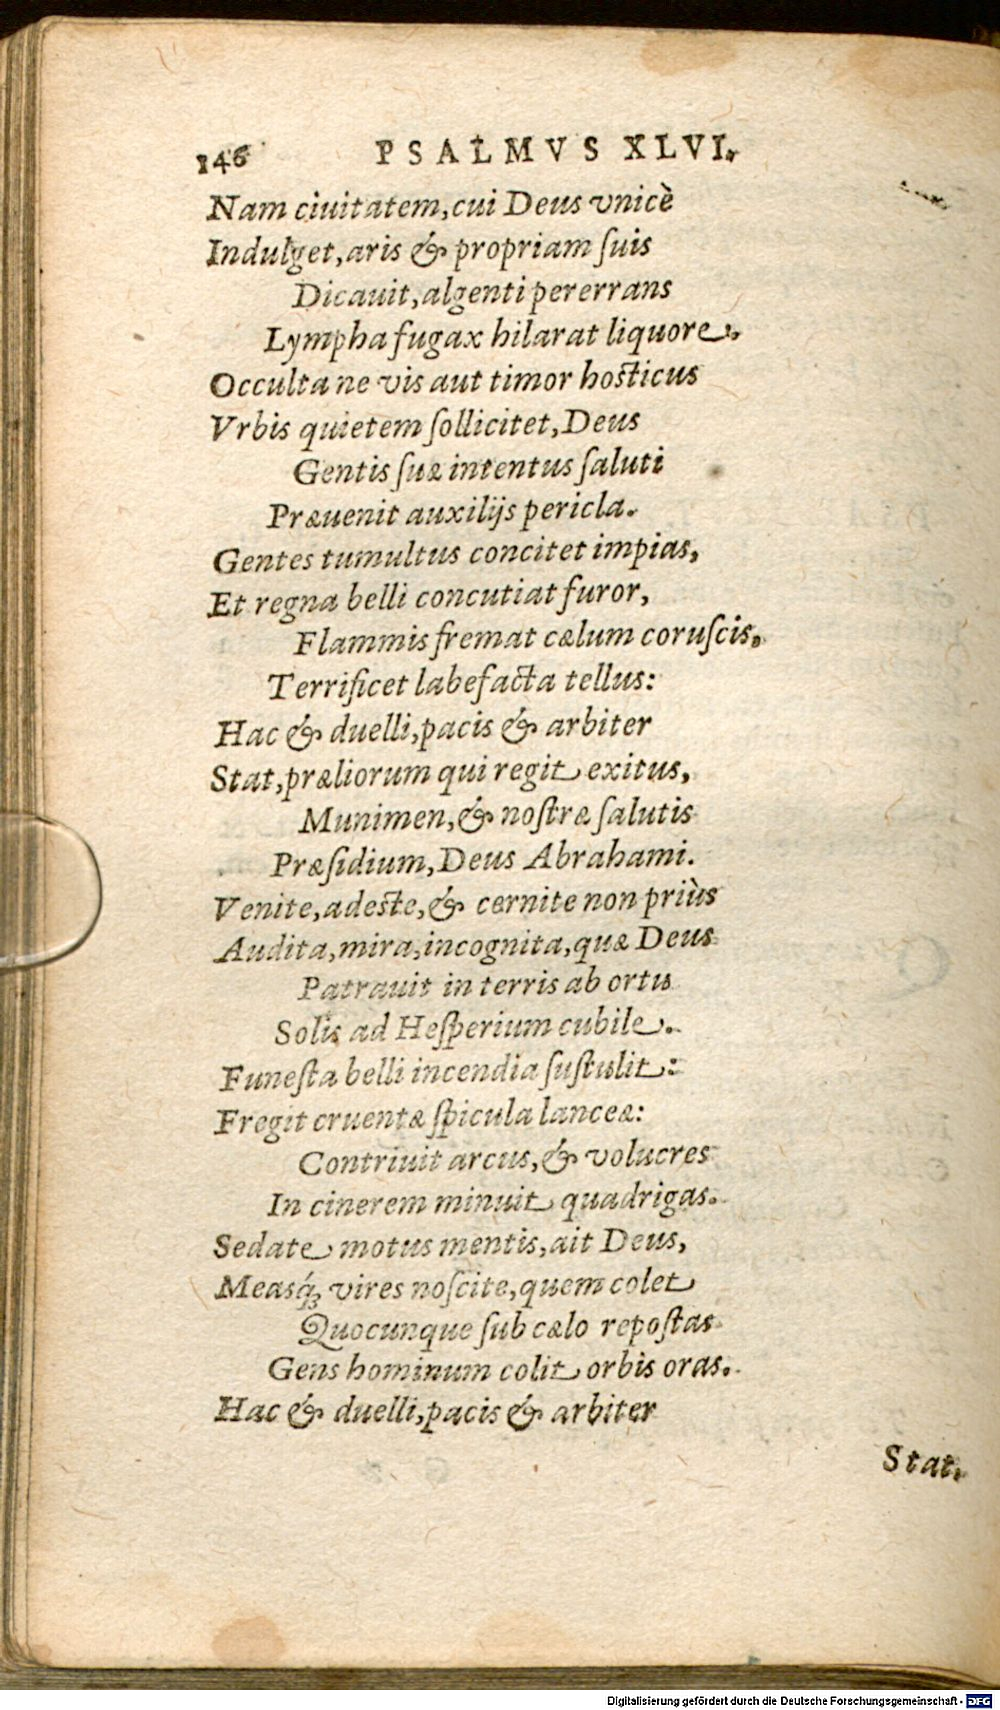 146 PSALMVS XLVI.
Nam ciuitatem, cui Deus vnicè
Indulget, aris & propriam ſuis
Dicauit, algenti pererrans
Lympha fugax hilarat liquore.
Occulta ne vis aut timor hoſticus
Vrbis quietem ſollicitet, Deus
Gentis ſuæ intentus ſaluti
Præuenit auxilijs pericla.
Gentes tumultus concitet impias,
Et regna belli concutiat furor,
Flammis fremat cælum coruſcis,
Terrificet labefacta tellus:
Hac & duelli, pacis & arbiter
Stat, præliorum qui regit exitus,
Munimen, & noſtræ ſalutis
Præſidium, Deus Abrahami.
Venite, adeſte, & cernite non priùs
Audita, mira, incognita, quæ Deus
Patrauit in terris ab ortu
Solis ad Heſperium cubile.
Funeſta belli incendia ſuſtulit:
Fregit cruentæ ſpicula lanceæ:
Contriuit arcus, & volucres
In cinerem minuit quadrigas.
Sedate motus mentis, ait Deus,
Measq́; vires noſcite, quem colet
Quocunque ſub cælo repoſtas
Gens hominum colit orbis oras.
Hac & duelli, pacis & arbiter
Stat,
Digitalisierung gefördert durch die Deutsche Forschungsgemeinschaft - DFG